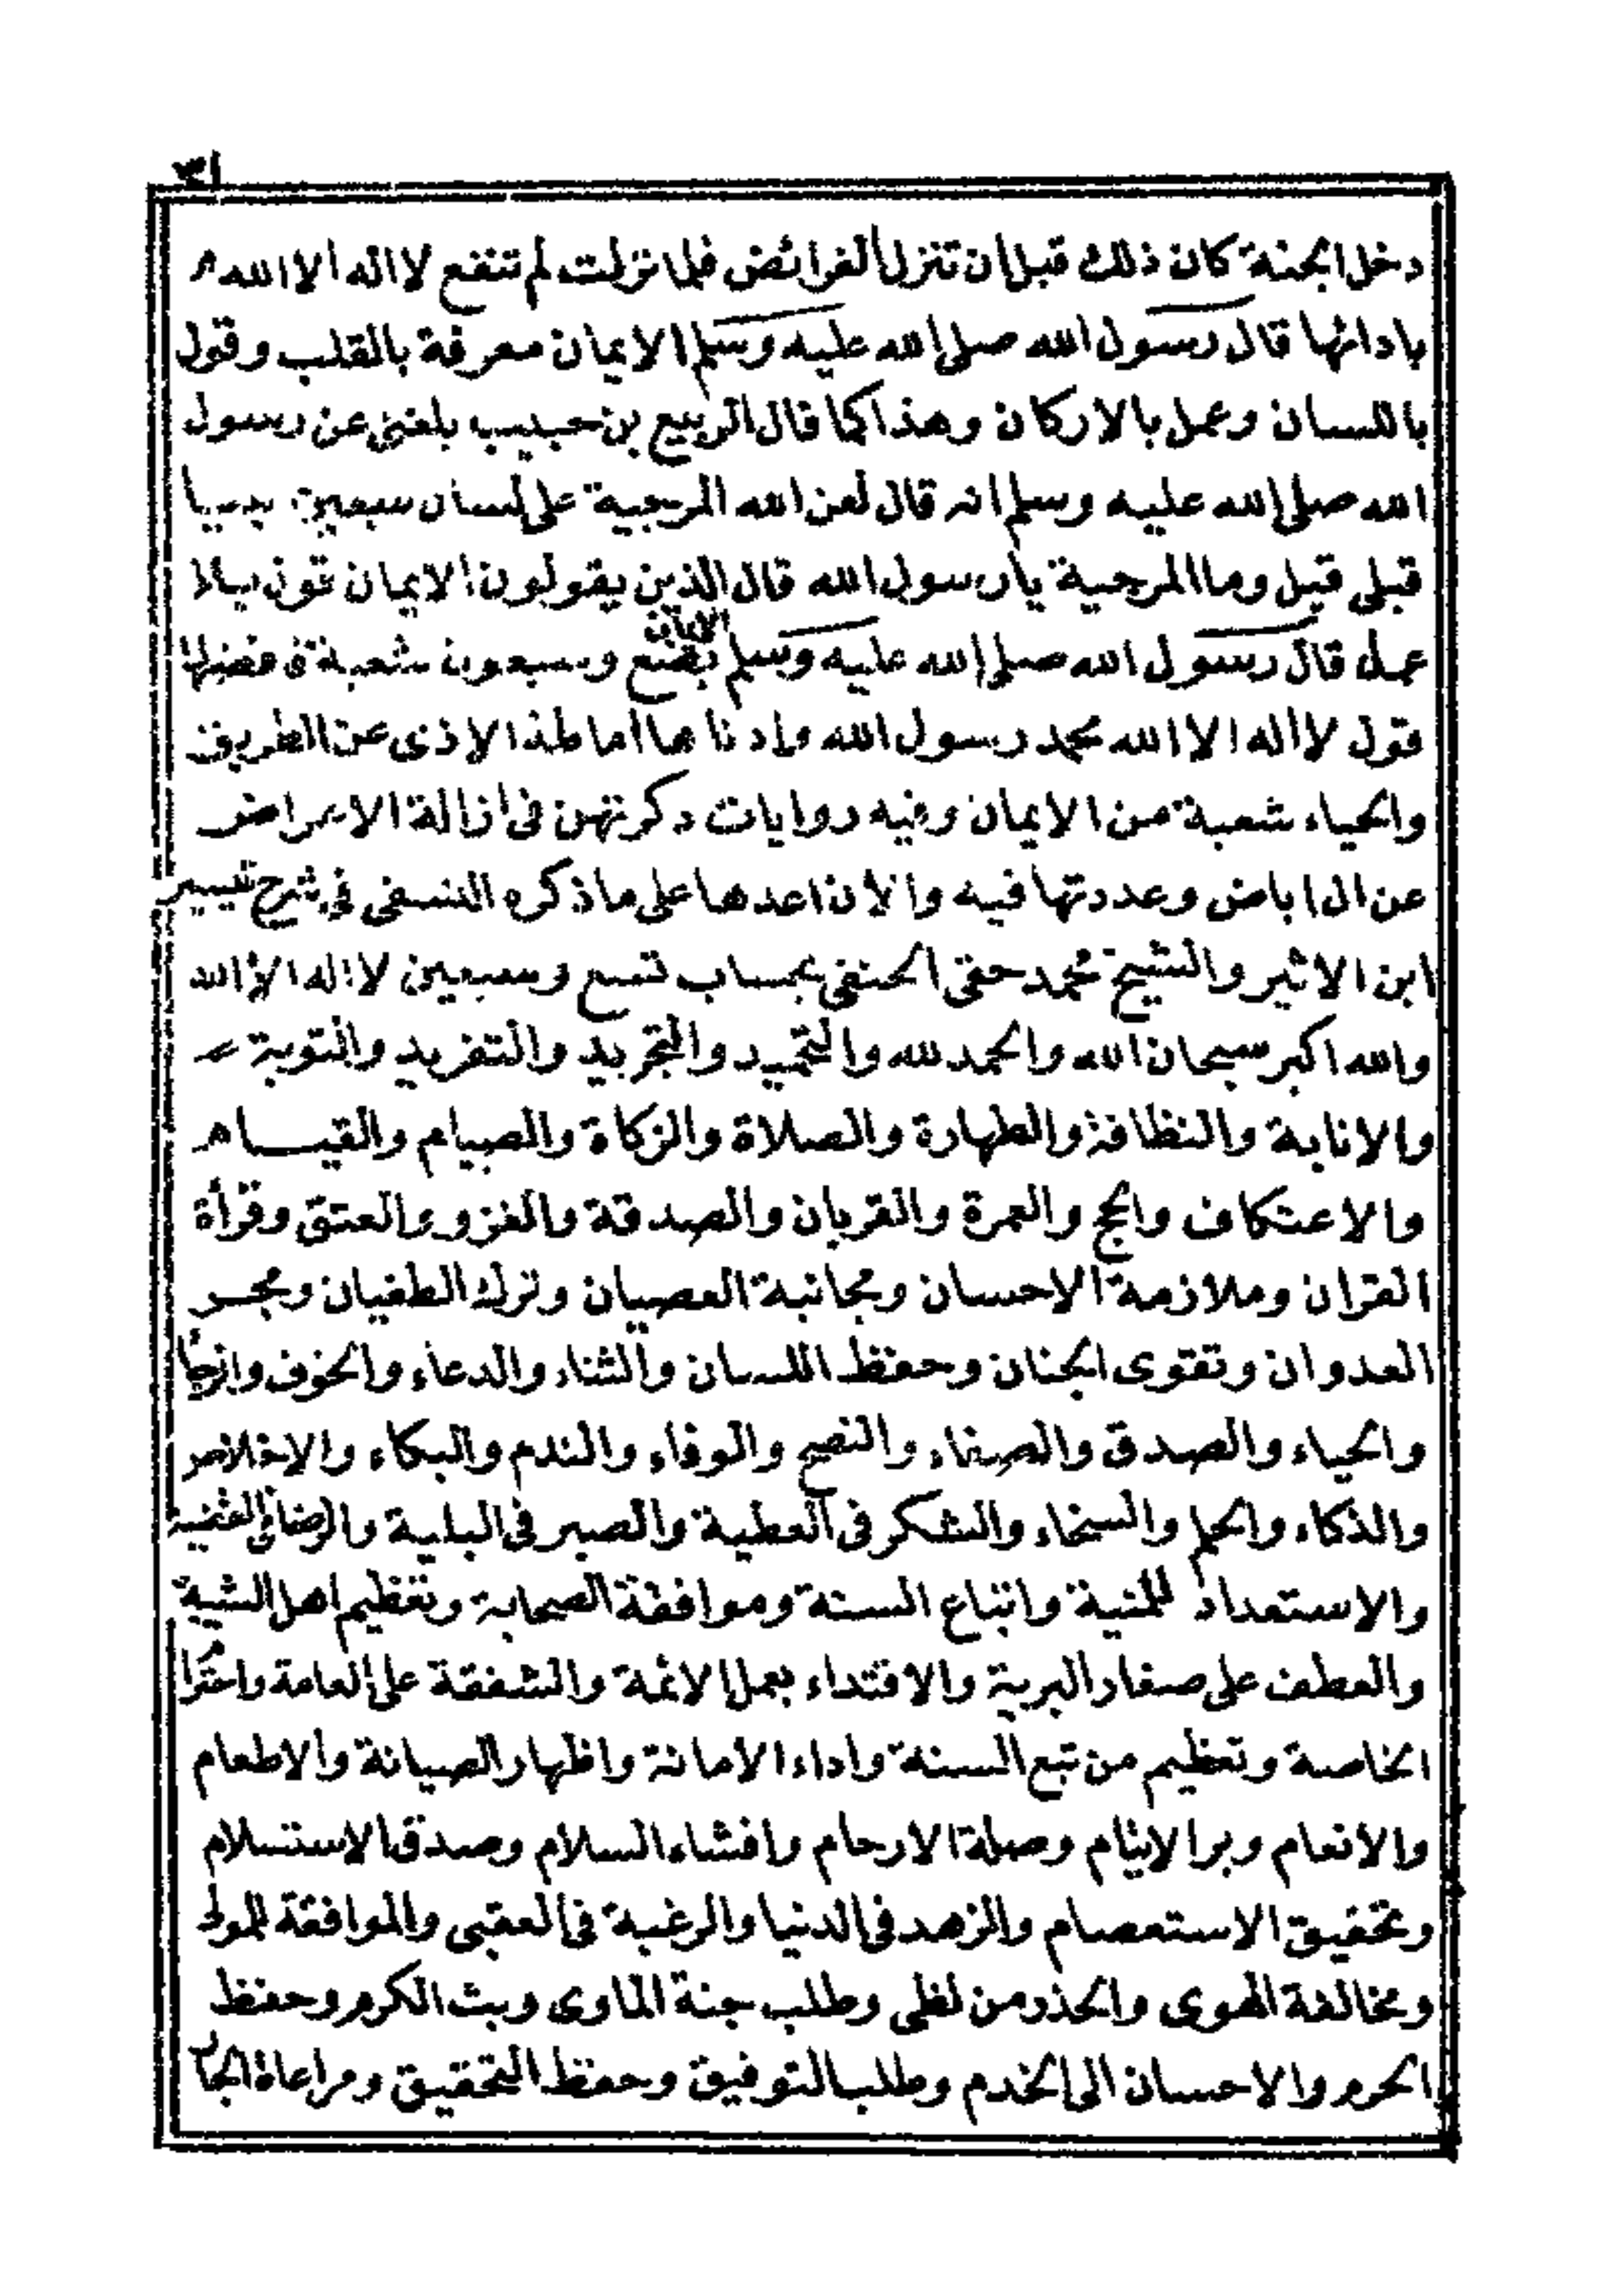 ٣١
دخل الجنة كان ذلك قبل ان تنزل الفرائض فلما نزلت لم تنفع لا اله الا الله
بادائها قال رسول الله صلى الله عليه وسلم الايمان معرفة بالقلب وقول
باللسان وعمل بالاركان وهذا كما قال الربيع بن حبيب بلغنى عن رسول
الله صلى الله عليه وسلم انه قال لعن الله المرجية على لسان سبعين نبييا
قبلى قيل وما المرجية يا رسول الله قال الذين يقولون الايمان قول بلا
عمل قال رسول الله صلى الله عليه وسلم الايمان بضع وسبعون شعبة فافضلها
قول لا اله الا الله محمد رسول الله وادناها اماطة الاذى عن الطريق
والحياء شعبة من الايمان وفيه روايات ذكرتهن فى ازالة الاعراض
عن ال اباض وعددتها فيه والان اعدها على ما ذكره النسفى فى شرح تيسير
ابن الاثير والشيخ محمد حقى الحنفى بحساب تسع وسبعين لا اله الا الله
والله اكبر سبحان الله والحمد لله والتحميد والتجريد والتفريد والتوبة
والانابة والنظافة والطهارة والصلاة والزكاة والصيام والقيام
والاعتكاف والحج والعمرة والقربان والصدقة والغزو والعتق وقرأة
القران وملازمة الاحسان ومجانبة العصيان وترك الطغيان وهجر
العدوان وتقوى الجنان وحفظ اللسان والثناء والدعاء والخوف والرجا
والحياء والصدق والصفاء والنصح والوفاء والندم والبكاء والاخلاص
والذكاء والحلم والسخاء والشكر فى العطية والصبر فى البلية والرضا فى القضية
والاستعداد للمنية واتباع السنة وموافقة الصحابة وتعظيم اهل الشيبة
والعطف على صغار البرية والاقتداء بعمل الائمة والشفقة على العامة واحترام
الخاصة وتعظيم من تبع السنة واداء الامانة واظهار الصيانة والاطعام
والانعام وبر الايتام وصلة الارحام وافشاء السلام وصدق الاستسلام
وتحقيق الاستعصام والزهد فى الدنيا والرغبة فى العقبى والموافقة للمولى
ومخالفة الهوى والحذر من لظى وطلب جنة الماوى وبث الكرم وحفظ
الحرم والاحسان الى الخدم وطلب التوفيق وحفظ التحقيق ومراعاة الجار